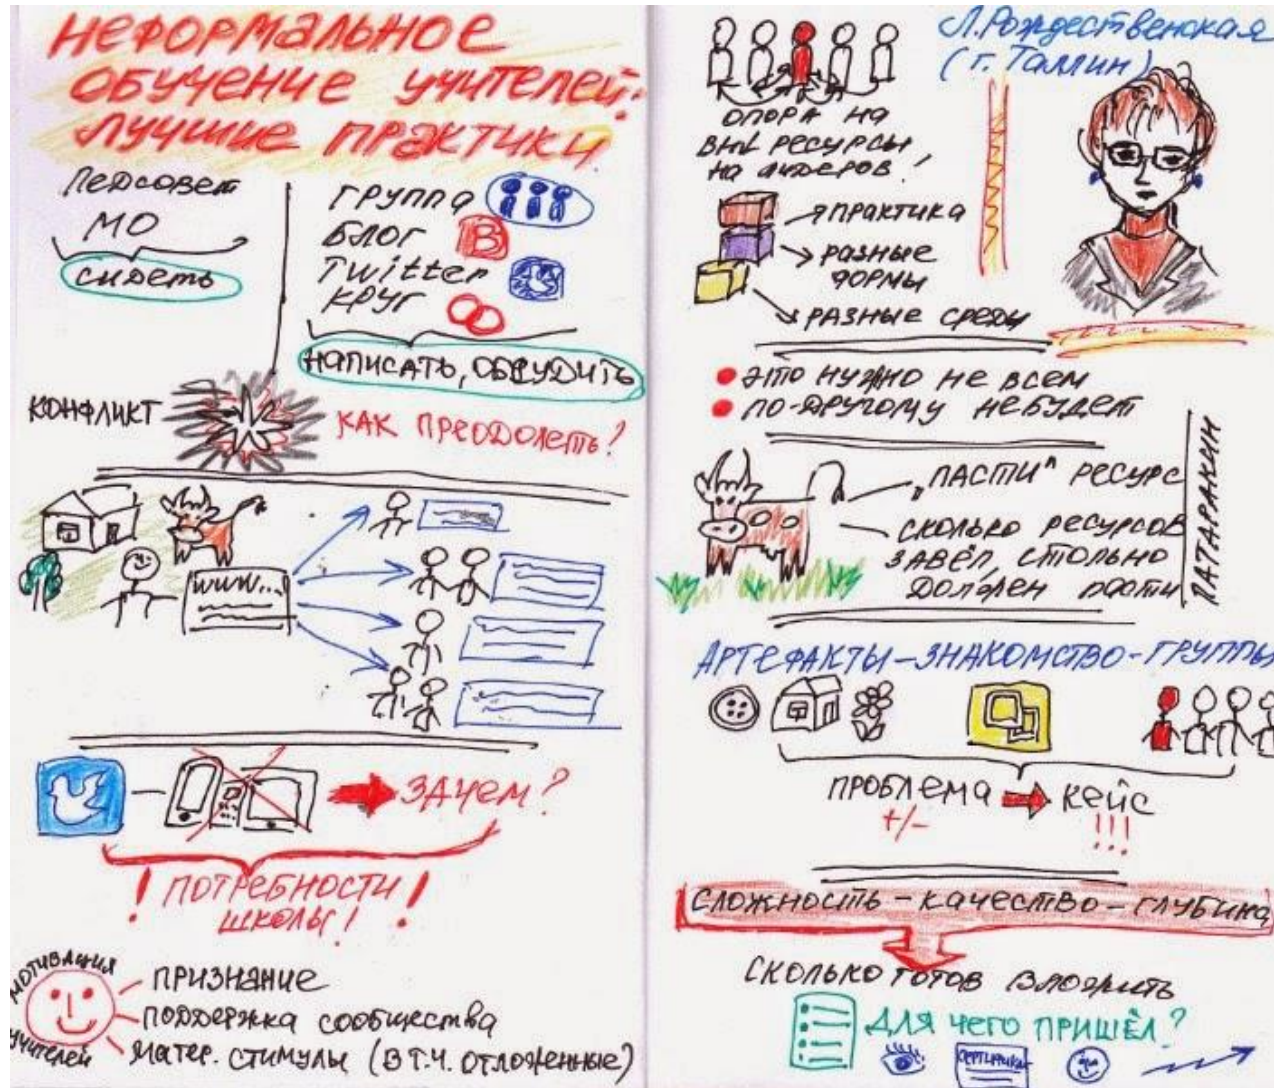 НЕФОРМАЛЬНОЕ
ОБУЧЕНИЕ УЧИТЕЛЕЙ:
ЛУЧШИЕ ПРАКТИКИ
ПЕДСОВЕТ
МО
СИДЕТЬ
ГРУППА
БЛОГ
B
Twitter
КРУГ
НАПИСАТЬ, ОБСУДИТЬ
КОНФЛИКТ
КАК ПРЕОДОЛЕТЬ?
www...
ЗАЧЕМ?
! ПОТРЕБНОСТИ !
ШКОЛЫ!
МОТИВАЦИЯ
УЧИТЕЛЕЙ
ПРИЗНАНИЕ
ПОДДЕРЖКА СООБЩЕСТВА
МАТЕР. СТИМУЛЫ (В Т.Ч. ОТЛОЖЕННЫЕ)
Л.Рождественская
(г. Таллин)
ОПОРА НА
ВН. РЕСУРСЫ
НА ЛИДЕРОВ!
ПРАКТИКА
РАЗНЫЕ
ФОРМЫ
РАЗНЫЕ СРЕДЫ
ЭТО НУЖНО НЕ ВСЕМ
ПО-ДРУГОМУ НЕ БУДЕТ
"ПАСТИ" РЕСУРС
СКОЛЬКО РЕСУРСОВ
ЗАВЁЛ, СТОЛЬКО
ДОЛЖЕН ПАСТИ
ПАТАРАКИН
АРТЕФАКТЫ-ЗНАКОМСТВО-ГРУППЫ
ПРОБЛЕМА
КЕЙС
+/-
!!!
СЛОЖНОСТЬ - КАЧЕСТВО - ГЛУБИНА
СКОЛЬКО ГОТОВ ВЛОЖИТЬ
ДЛЯ ЧЕГО ПРИШЁЛ?
СЕРТИФИКАТ